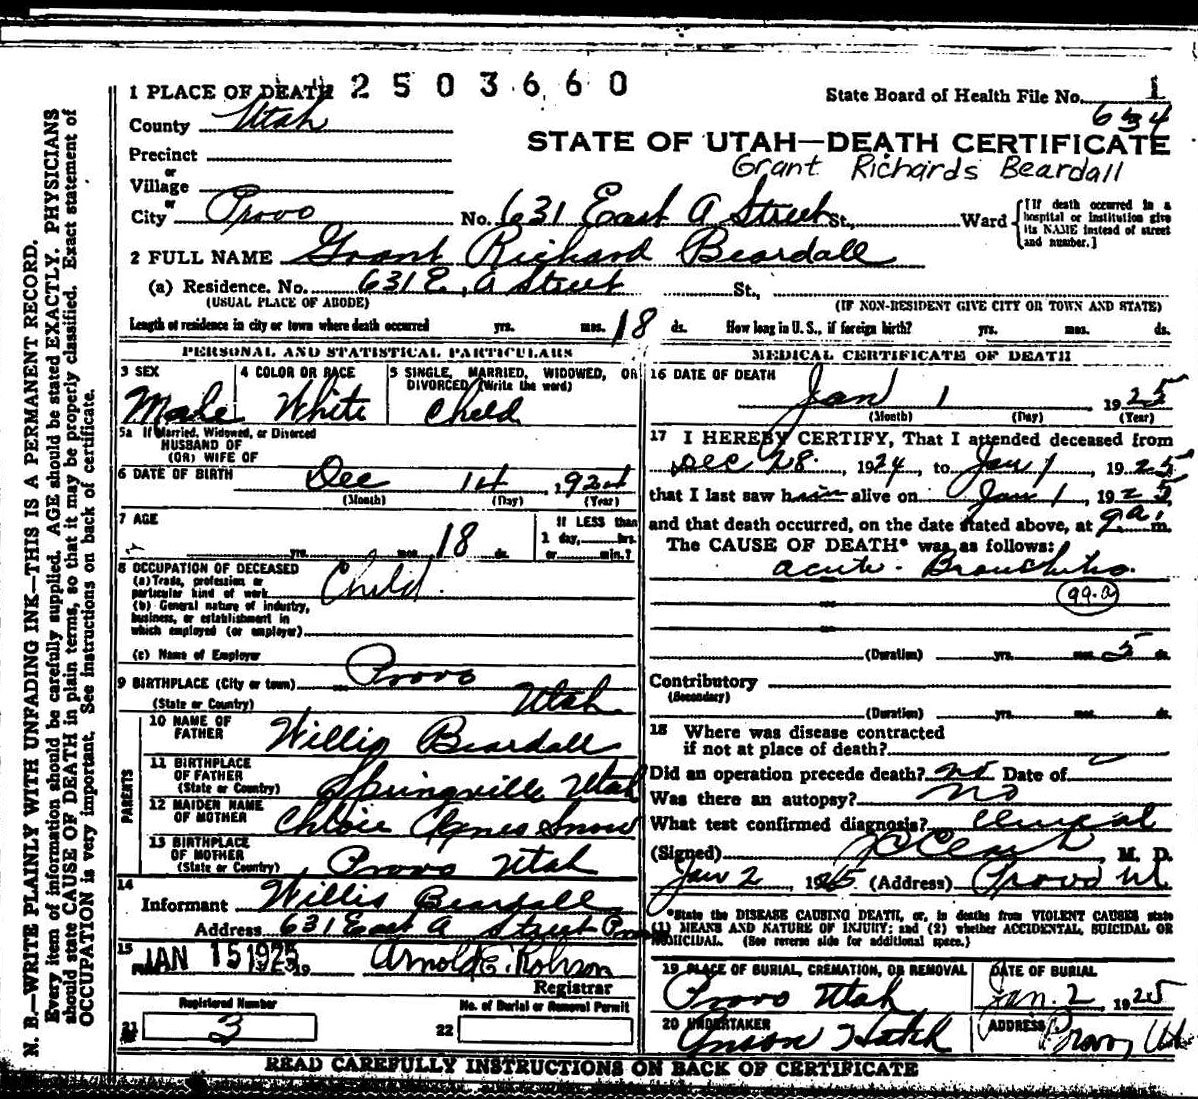 1 PLACE OF DEATH 2503660
State Board of Health File No. 1
634
County Utah
STATE OF UTAH—DEATH CERTIFICATE
Precinct
Grant Richards Beardall
or
Village
or
City Provo No. 631 East A Street St., Ward [If death occurred in a hospital or institution give its NAME instead of street and number.]
2 FULL NAME Grant Richard Beardall
(a) Residence. No. 631 E. A Street St.,
(USUAL PLACE OF ABODE) (IF NON-RESIDENT GIVE CITY OR TOWN AND STATE)
Length of residence in city or town where death occurred yrs. mos. 18 ds. How long in U. S., if foreign birth? yrs. mos. ds.
PERSONAL AND STATISTICAL PARTICULARS
3 SEX 4 COLOR OR RACE 5 SINGLE, MARRIED, WIDOWED, OR
DIVORCED (Write the word)
Male White Child
5a If Married, Widowed, or Divorced
HUSBAND OF
(OR) WIFE OF
6 DATE OF BIRTH Dec 14, 1924
(Month) (Day) (Year)
7 AGE If LESS than
1 day, hrs.
yrs. mos. 18 ds. or min.?
8 OCCUPATION OF DECEASED
(a) Trade, profession or
particular kind of work Child.
(b) General nature of industry,
business, or establishment in
which employed (or employer)
(c) Name of Employer
9 BIRTHPLACE (City or town) Provo
(State or Country) Utah
PARENTS
10 NAME OF
FATHER Willis Beardall
11 BIRTHPLACE
OF FATHER
(State or Country) Springville Utah
12 MAIDEN NAME
OF MOTHER Chloie Agnes Snow
13 BIRTHPLACE
OF MOTHER
(State or Country) Provo Utah
14
Informant Willis Beardall
Address 631 East A Street
15 JAN 15 1925 Arnold E. Robison
Registrar
Registered Number No. of Burial or Removal Permit
21 3 22
MEDICAL CERTIFICATE OF DEATH
16 DATE OF DEATH
Jan 1 1925
(Month) (Day) (Year)
17 I HEREBY CERTIFY, That I attended deceased from
Dec 28, 1924, to Jan 1, 1925
that I last saw him alive on Jan 1, 1925
and that death occurred, on the date stated above, at 9 a. m.
The CAUSE OF DEATH* was as follows:
acute Bronchitis.
99.a
(Duration) yrs. mos. 5 ds.
Contributory
(Secondary)
(Duration) yrs. mos. ds.
18 Where was disease contracted
if not at place of death?
Did an operation precede death? no Date of
Was there an autopsy? no
What test confirmed diagnosis? clinical
(Signed) M. D.
Jan 2, 1925 (Address) Provo Ut
*State the DISEASE CAUSING DEATH, or, in deaths from VIOLENT CAUSES state
(1) MEANS AND NATURE OF INJURY; and (2) whether ACCIDENTAL, SUICIDAL OR
HOMICIDAL. (See reverse side for additional space.)
19 PLACE OF BURIAL, CREMATION, OR REMOVAL DATE OF BURIAL
Provo Utah Jan. 2, 1925
20 UNDERTAKER ADDRESS
Anson Hatch Provo, Utah
READ CAREFULLY INSTRUCTIONS ON BACK OF CERTIFICATE
N. B.—WRITE PLAINLY WITH UNFADING INK—THIS IS A PERMANENT RECORD.
Every item of information should be carefully supplied. AGE should be stated EXACTLY. PHYSICIANS
should state CAUSE OF DEATH in plain terms, so that it may be properly classified. Exact statement of
OCCUPATION is very important. See instructions on back of certificate.